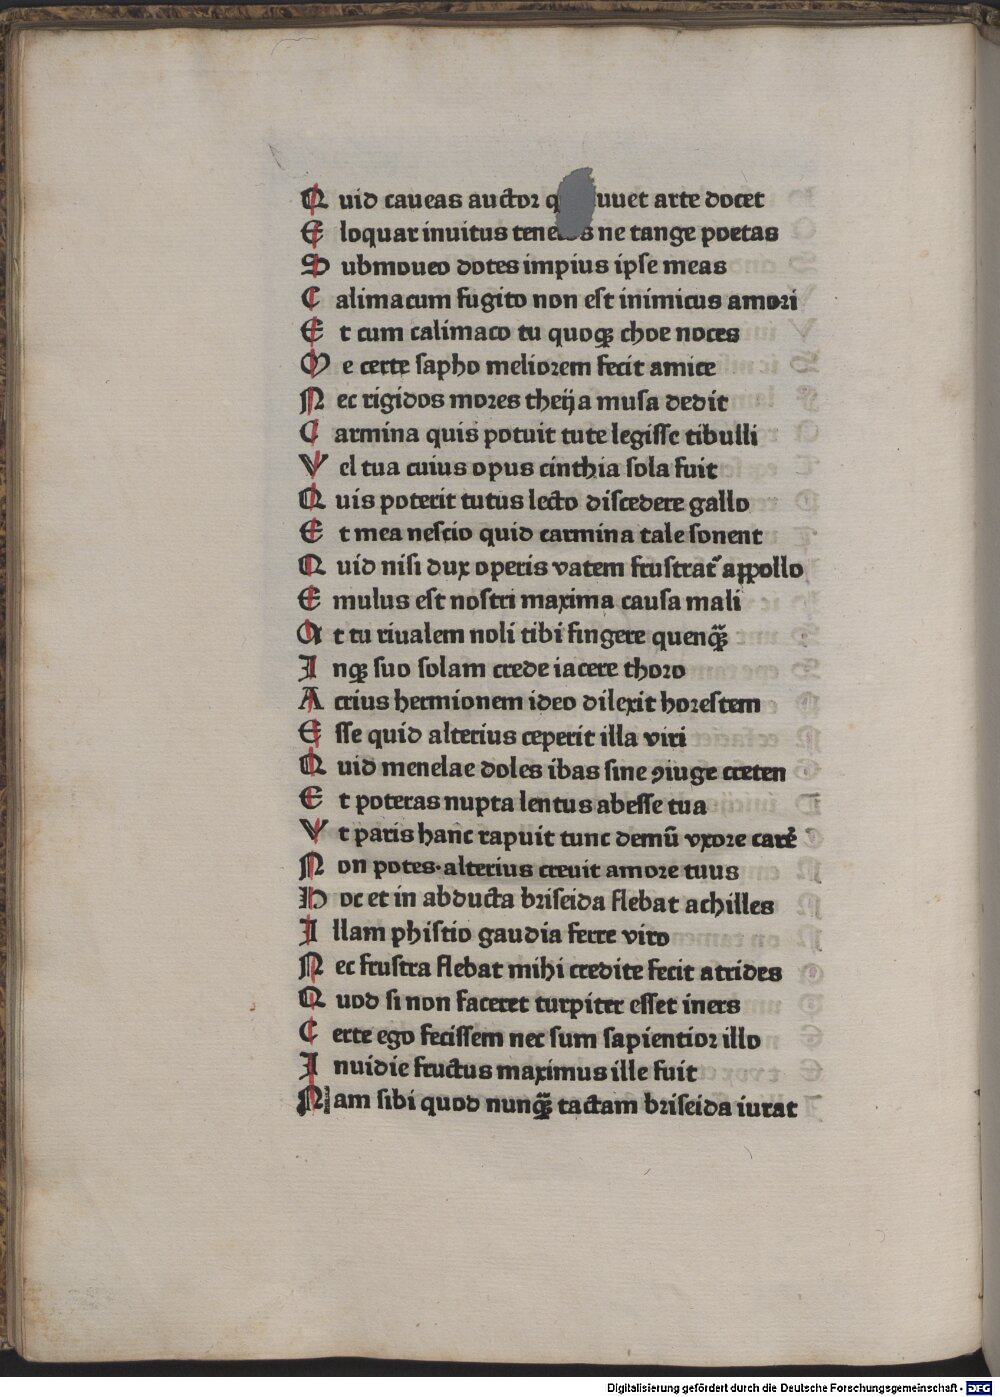 Quid caueas auctor q uuet arte docet
Eloquar inuitus teneros ne tange poetas
Submoueo dotes impius ipse meas
Calimacum fugito non est inimicus amori
Et cum calimaco tu quoqꝫ choe noces
Me certe sapho meliorem fecit amice
Nec rigidos mores theija musa dedit
Carmina quis potuit tute legisse tibulli
Vel tua cuius opus cinthia sola fuit
Quis poterit tutus lecto discedere gallo
Et mea nescio quid carmina tale sonent
Quid nisi dux operis vatem frustrat᷑ appollo
Emulus est nostri maxima causa mali
At tu riualem noli tibi fingere quenqꝫ̃
Inqꝫ suo solam crede iacere thoro
Acrius hermionem ideo dilexit horestem
Esse quid alterius ceperit illa viri
Quid menelae doles ibas sine ꝯiuge creten
Et poteras nupta lentus abesse tua
Vt paris hanc rapuit tunc demū vxore carē
Non potes·alterius creuit amore tuus
Hoc et in abducta briseida flebat achilles
Illam phistio gaudia ferre viro
Nec frustra flebat mihi credite fecit atrides
Quod si non faceret turpiter esset iners
Certe ego fecissem nec sum sapientior illo
Inuidie fructus maximus ille fuit
Nam sibi quod nunqꝫ̃ tactam briseida iurat
Digitalisierung gefördert durch die Deutsche Forschungsgemeinschaft - DFG